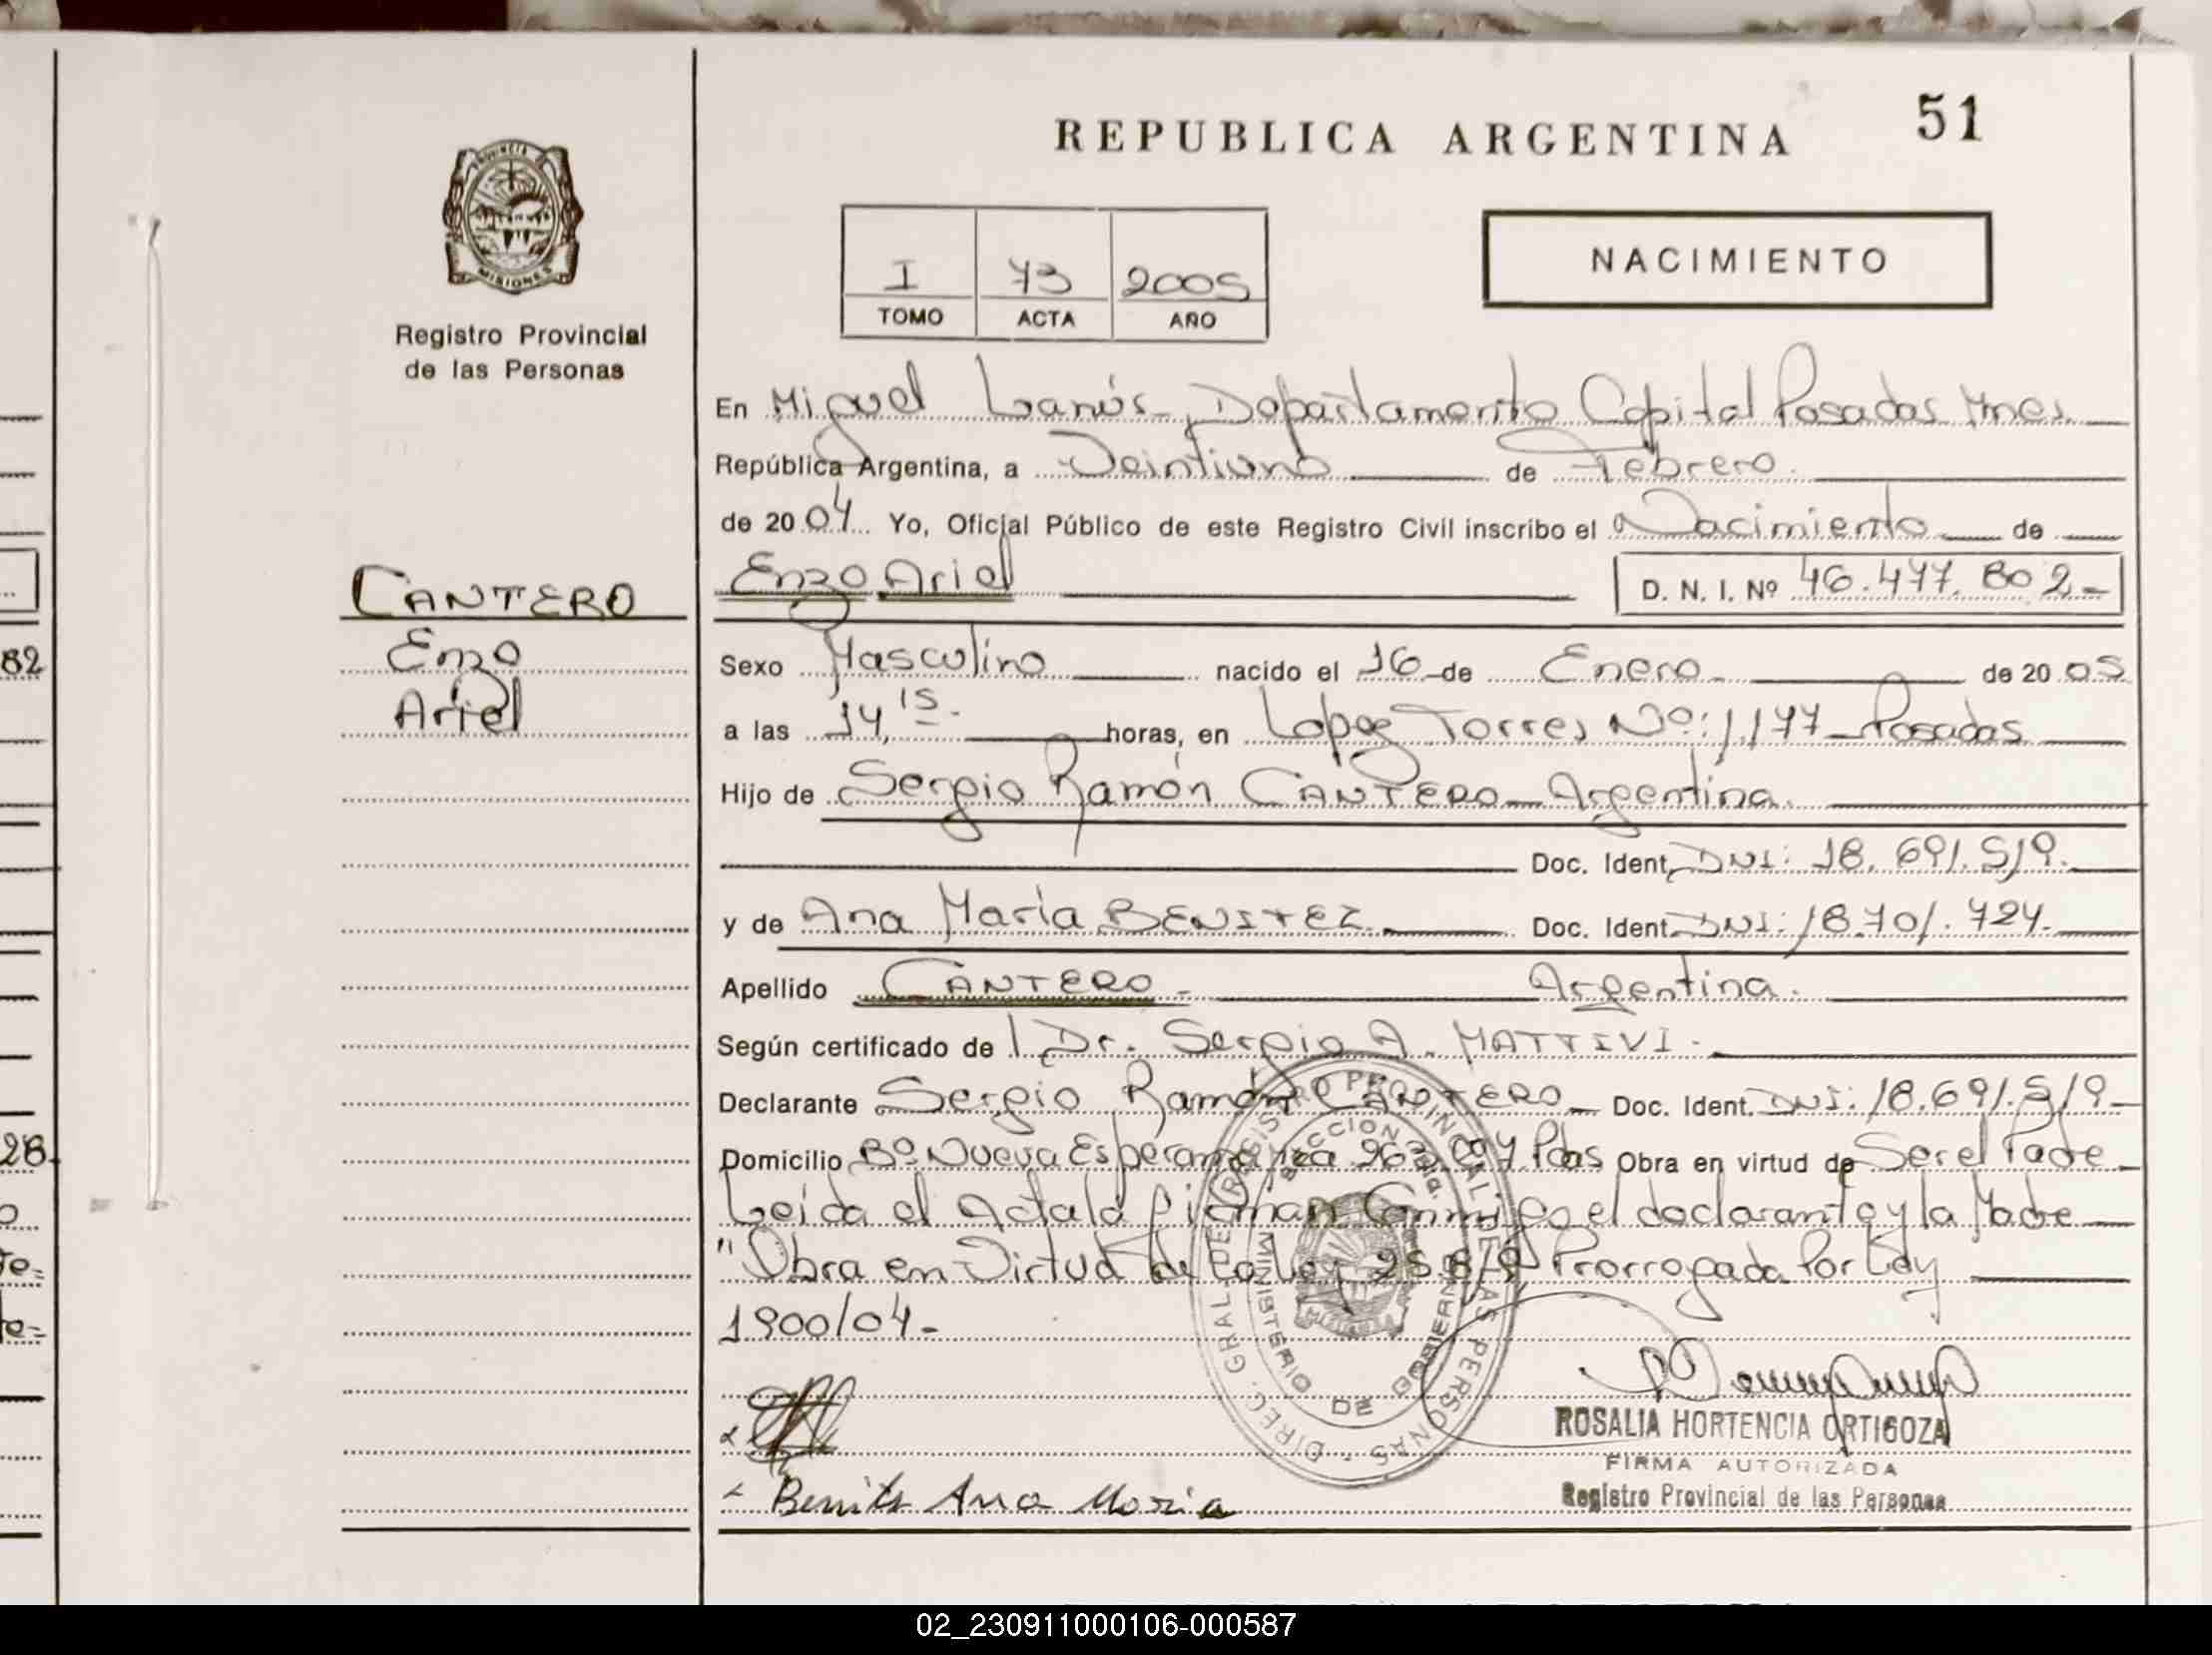 REPUBLICA ARGENTINA
51
PROVINCIA DE
MISIONES
Registro Provincial
de las Personas
I 73 2005
TOMO ACTA AÑO
NACIMIENTO
En Miguel Lanús Departamento Capital Posadas Mnes.
República Argentina, a Veintiuno de Febrero.
de 2004 Yo, Oficial Público de este Registro Civil inscribo el Nacimiento de
CANTERO
Enzo
Ariel
Enzo Ariel D. N. I. Nº 46.477.802-
Sexo Masculino nacido el 16 de Enero de 2005
a las 14,15- horas, en Lopez Torres Nº: 1177 Posadas
Hijo de Sergio Ramón CANTERO Argentina.
Doc. Ident. DNI: 18.691.519.
y de Ana María BENITEZ Doc. Ident. DNI: 18.701.724.
Apellido CANTERO- Argentina.
Según certificado de Dr. Sergio A. MATTIVI.
Declarante Sergio Ramón CANTERO Doc. Ident. DNI: 18.691.519
Domicilio Bº Nueva Esperanza Pdas Obra en virtud de Ser el Padre
Leida el Acta la firman Conmigo el declarante y la Madre
"Obra en Virtud de la Ley 25.819 Prorrogada Por Ley
1900/04-
DIREC. GRAL. DE REGISTRO PROVINCIAL DE LAS PERSONAS
MINISTERIO DE GOBIERNO
ROSALIA HORTENCIA ORTIGOZA
FIRMA AUTORIZADA
Registro Provincial de las Personas
Benitez Ana Maria
82
28
02_230911000106-000587